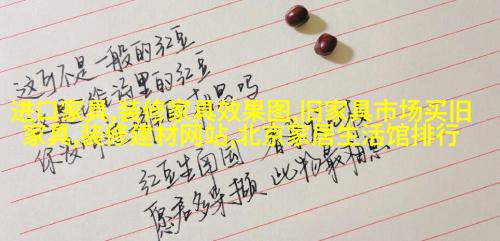 这可不是一般的红豆
诗里的红豆
吗
进口家具,装修家具效果图,旧家具市场买旧
家具,装修建材网站,北京家居生活馆排行
红豆生南国 春
愿君多采撷 此物最相思